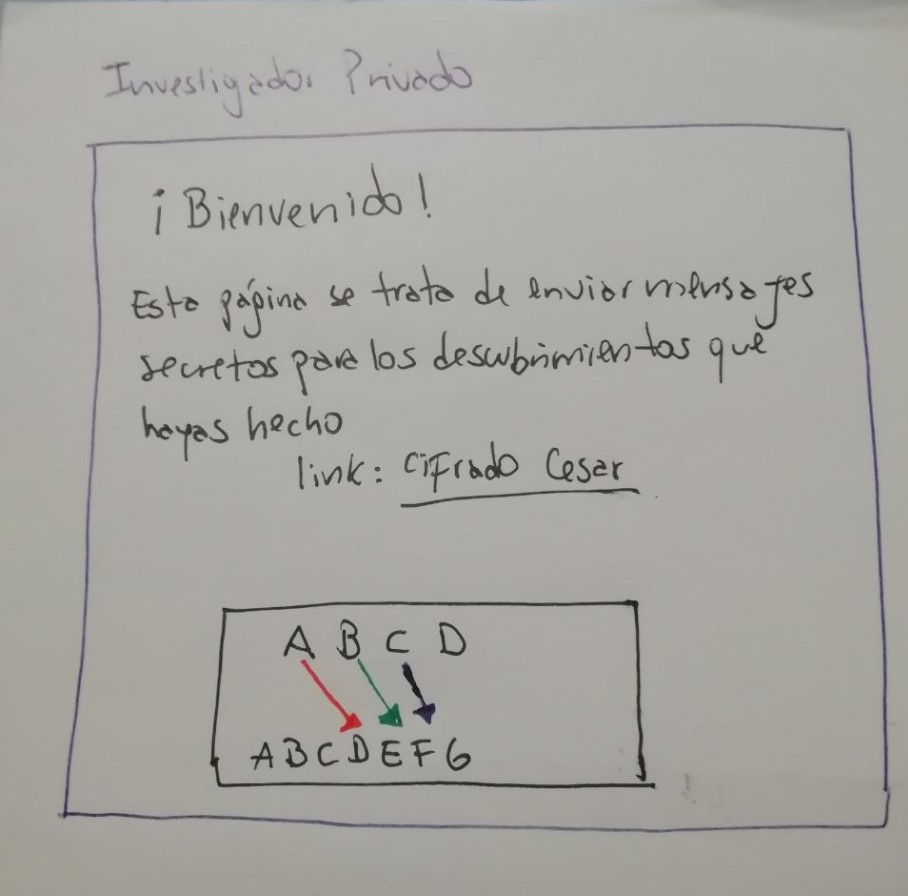 Investigador Privado
¡Bienvenido!
Esta página se trata de enviar mensajes
secretos para los descubrimientos que
hayas hecho
link: Cifrado Cesar
A B C D
A B C D E F G